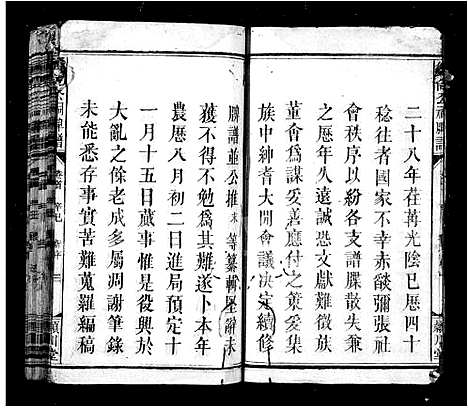 二十八年荏苒光陰已歷四十
稔往者國家不幸赤燄彌張社
會秩序以紛各支譜牒散失兼
之歷年久遠誠恐文獻難徵族
董會爲謀妥善應付之策爰集
族中紳耆大開會議決定續修
牒譜並公推末等纂輯堅辭未
獲不得不勉爲其難遂卜本年
農歷八月初二日進局預定十
一月十五日蕆事惟是役興於
大亂之餘老成多屬凋謝筆錄
未能悉存事實苦難蒐羅編稿